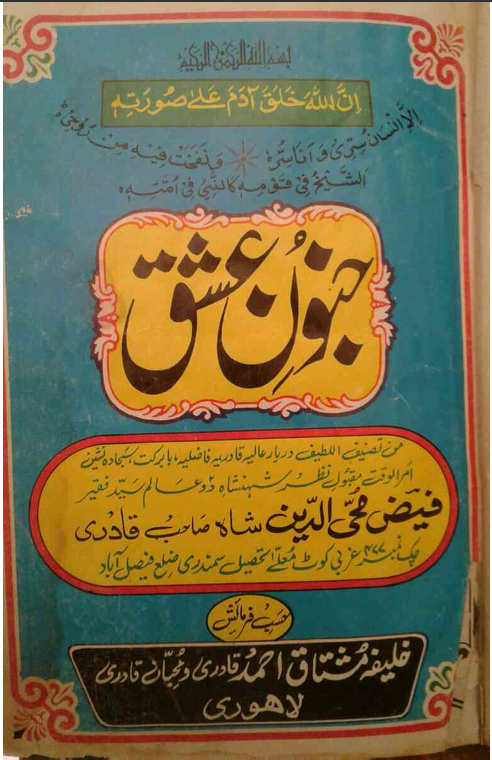 بسم اللہ الرحمن الرحیم
اِنَّ اللہَ خَلَقَ اٰدَمَ عَلٰی صُوْرَتِہٖ
اَلْاِنْسَانُ سِرِّیْ وَ اَنَا سِرُّہٗ وَنَفَخْتُ فِیْہِ مِنْ رُّوْحِیْ
الشَّیْخُ فِیْ قَوْمِہٖ کَالنَّبِیِّ فِیْ اُمَّتِہٖ
جنونِ عشق
من تصنیف اللطیف دربار عالیہ قادریہ فاضلیہ، بابرکت سجادہ نشین
امر الوقت مقبول نظر شہنشاہ دو عالم سید فقیر
فیض محی الدین شاہ صاحب قادری
چک نمبر ۴۷۷ عربی کوٹ معلّے تحصیل سمندری ضلع فیصل آباد
حسب فرمائش
خلیفہ مشتاق احمد قادری و محبانِ قادری
لاھوری